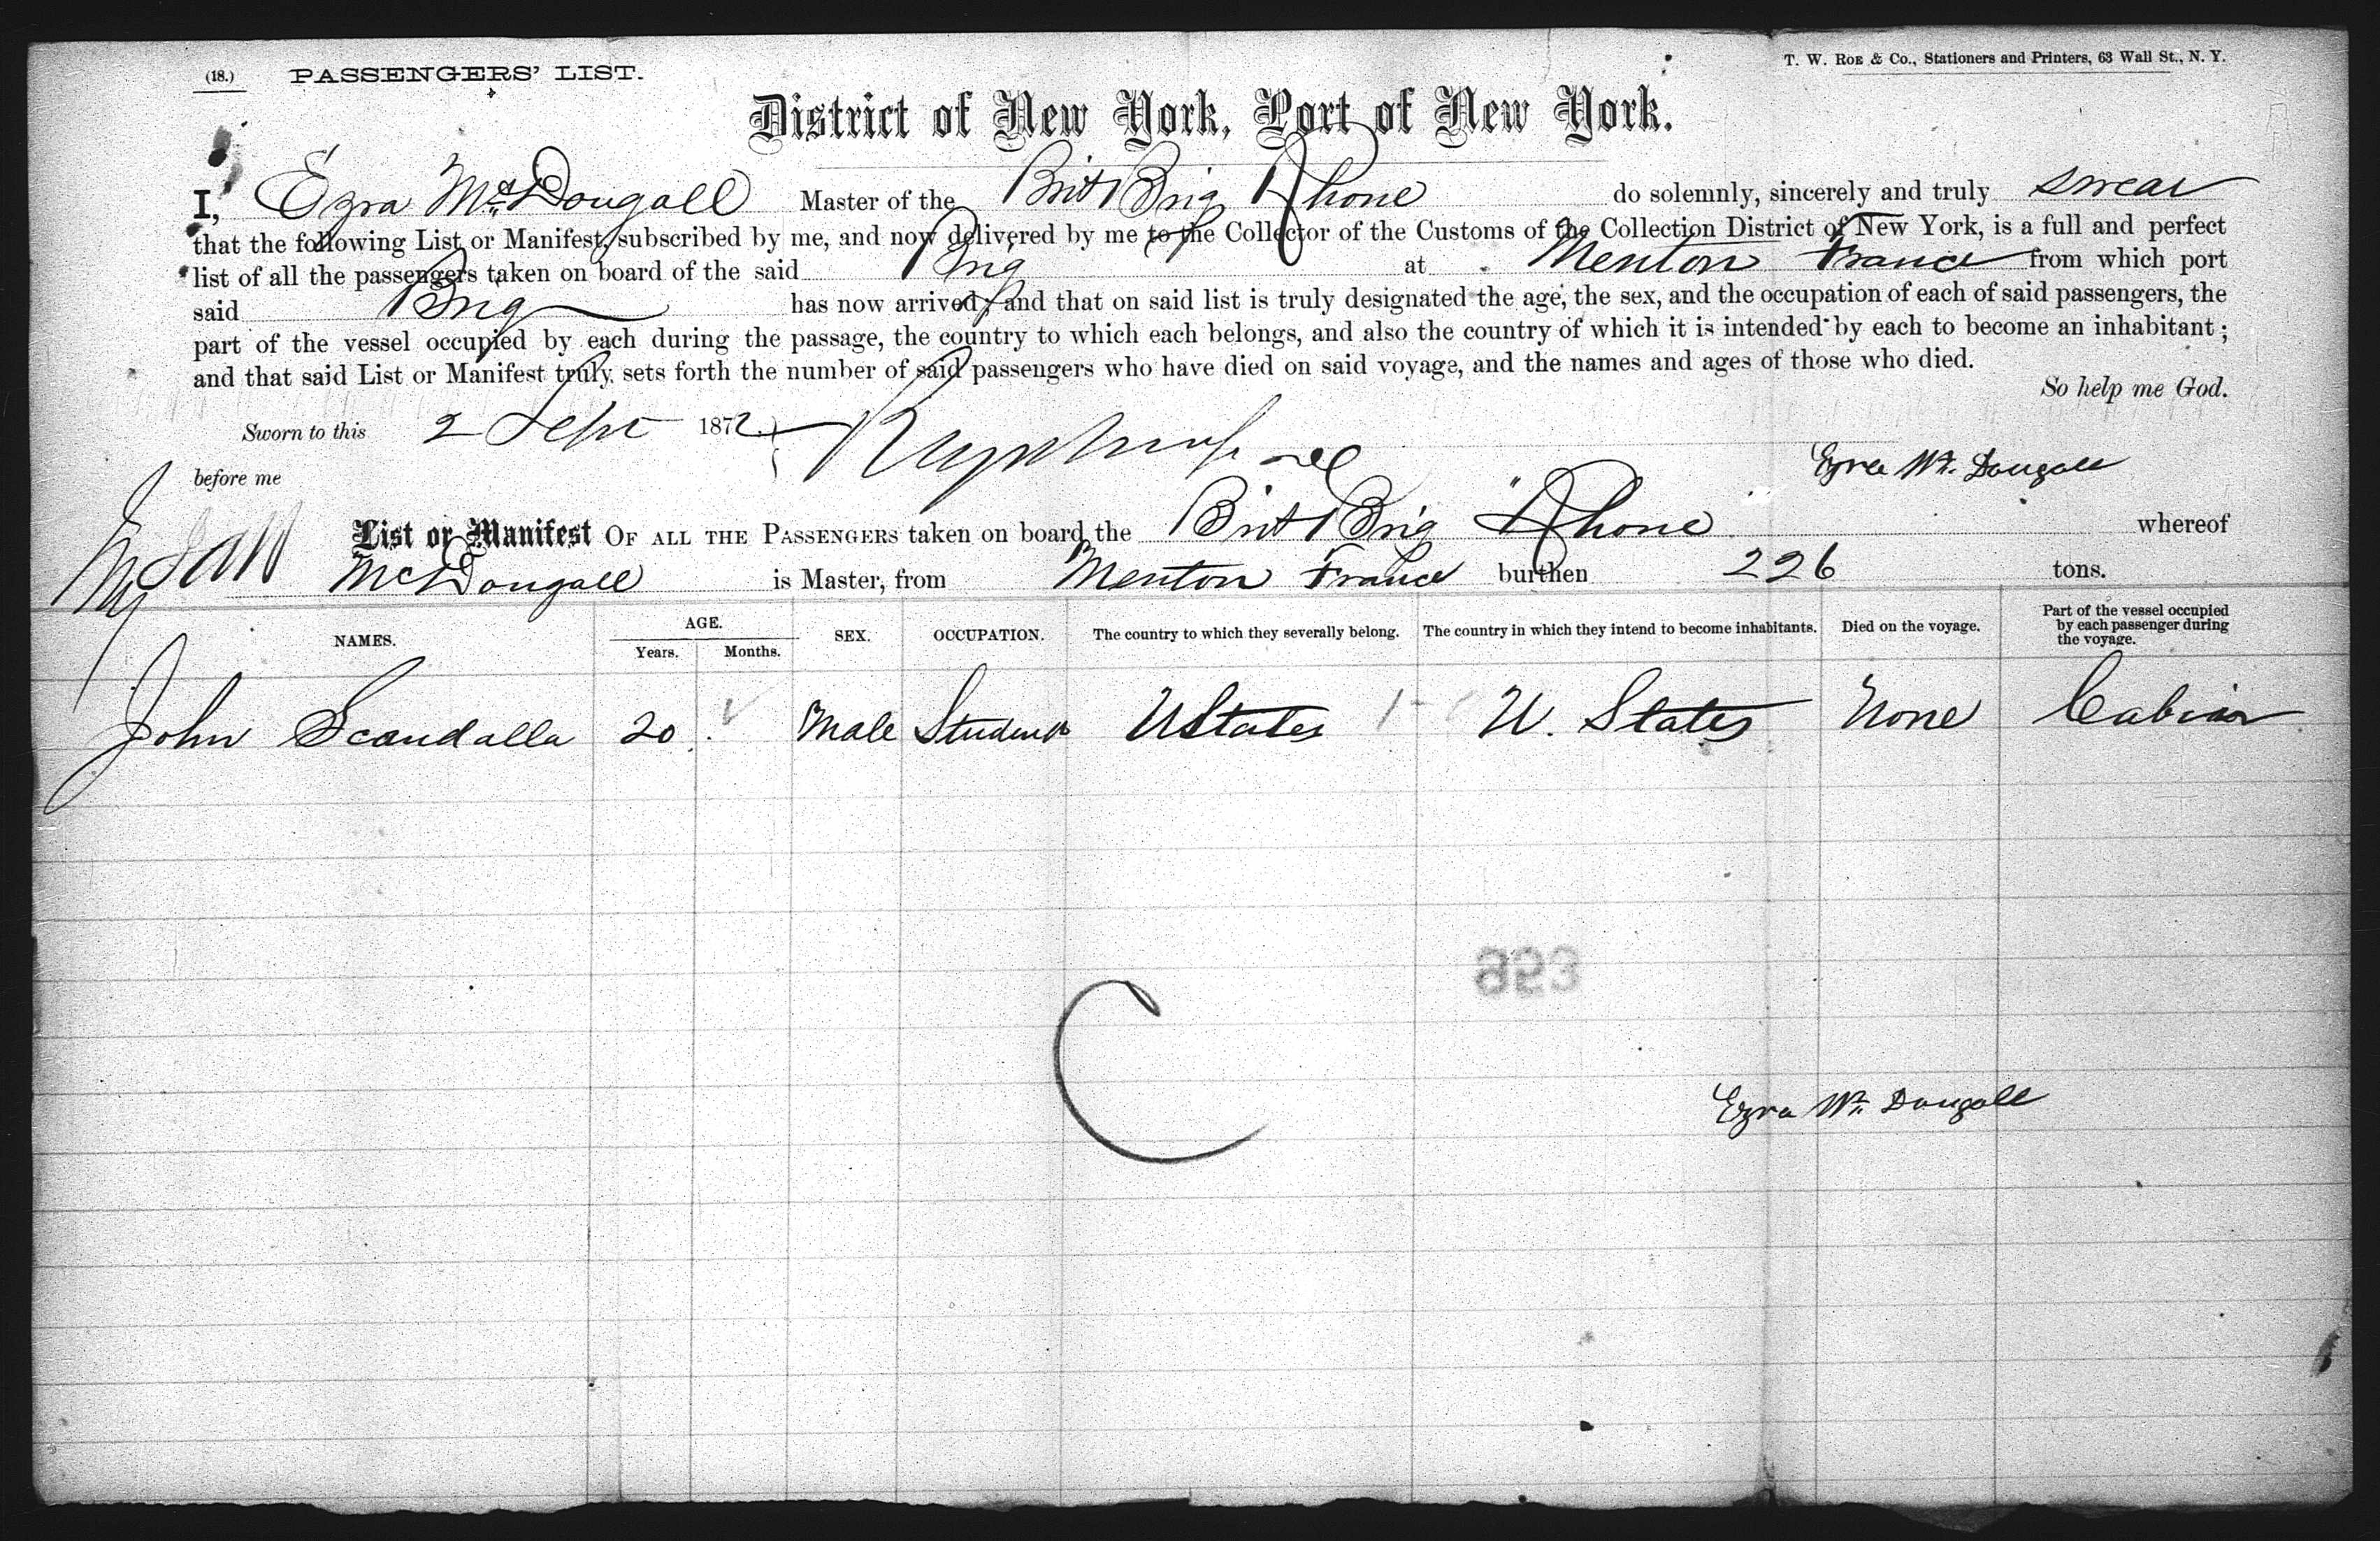 (18.) PASSENGERS' LIST.
T. W. ROE & Co., Stationers and Printers, 63 Wall St., N. Y.
District of New York, Port of New York.
I, Ezra McDougall Master of the Brit Brig Rhone do solemnly, sincerely and truly swear
that the following List or Manifest, subscribed by me, and now delivered by me to the Collector of the Customs of the Collection District of New York, is a full and perfect
list of all the passengers taken on board of the said Brig at Menton France from which port
said Brig has now arrived; and that on said list is truly designated the age, the sex, and the occupation of each of said passengers, the
part of the vessel occupied by each during the passage, the country to which each belongs, and also the country of which it is intended by each to become an inhabitant;
and that said List or Manifest truly sets forth the number of said passengers who have died on said voyage, and the names and ages of those who died.
So help me God.
Sworn to this 2 Sept 1872
Ezra McDougall
before me
List or Manifest OF ALL THE PASSENGERS taken on board the Brit Brig "Rhone" whereof
McDougall is Master, from Menton France burthen 226 tons.
NAMES. AGE. Years. Months. SEX. OCCUPATION. The country to which they severally belong. The country in which they intend to become inhabitants. Died on the voyage. Part of the vessel occupied by each passenger during the voyage.
John Scandalla 20 Male Student UStates U. States None Cabin
C
Ezra McDougall